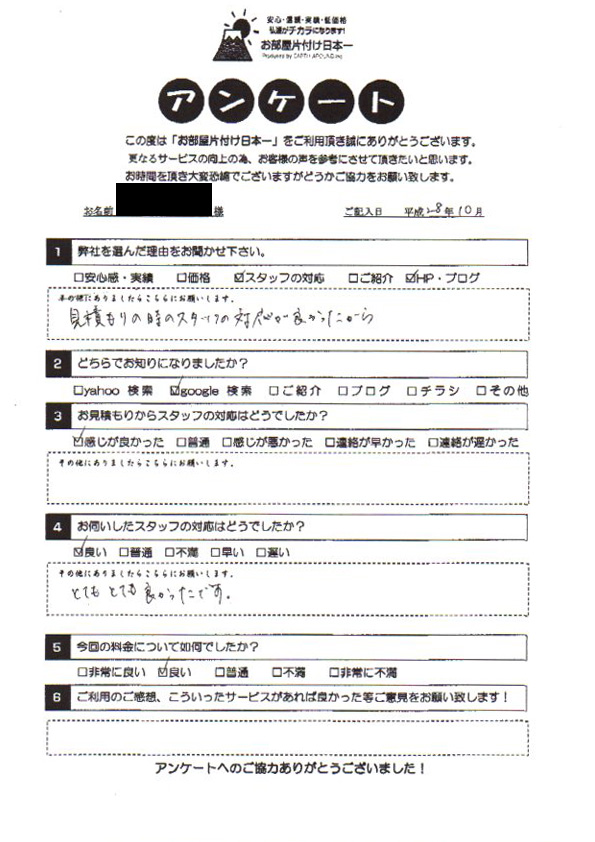 安心・信頼・実績・低価格
弘進がチカラになります!
お部屋片付け日本一
Produced by EARTH AROUND.inc
アンケート
この度は「お部屋片付け日本一」をご利用頂き誠にありがとうございます。
更なるサービスの向上の為、お客様の声を参考にさせて頂きたいと思います。
お時間を頂き大変恐縮でございますがどうかご協力をお願い致します。
お名前 様 ご記入日 平成28年10月
1 弊社を選んだ理由をお聞かせ下さい。
□安心感・実績 □価格 ☑スタッフの対応 □ご紹介 ☑HP・ブログ
その他にありましたらこちらにお願いします。
見積もりの時のスタッフの対応が良かったから
2 どちらでお知りになりましたか?
□yahoo 検索 ☑google 検索 □ご紹介 □ブログ □チラシ □その他
3 お見積もりからスタッフの対応はどうでしたか?
☑感じが良かった □普通 □感じが悪かった □連絡が早かった □連絡が遅かった
その他にありましたらこちらにお願いします。
4 お伺いしたスタッフの対応はどうでしたか?
☑良い □普通 □不満 □早い □遅い
その他にありましたらこちらにお願いします。
とても とても 良かったです。
5 今回の料金について如何でしたか?
□非常に良い ☑良い □普通 □不満 □非常に不満
6 ご利用のご感想、こういったサービスがあれば良かった等ご意見をお願い致します!
アンケートへのご協力ありがとうございました!